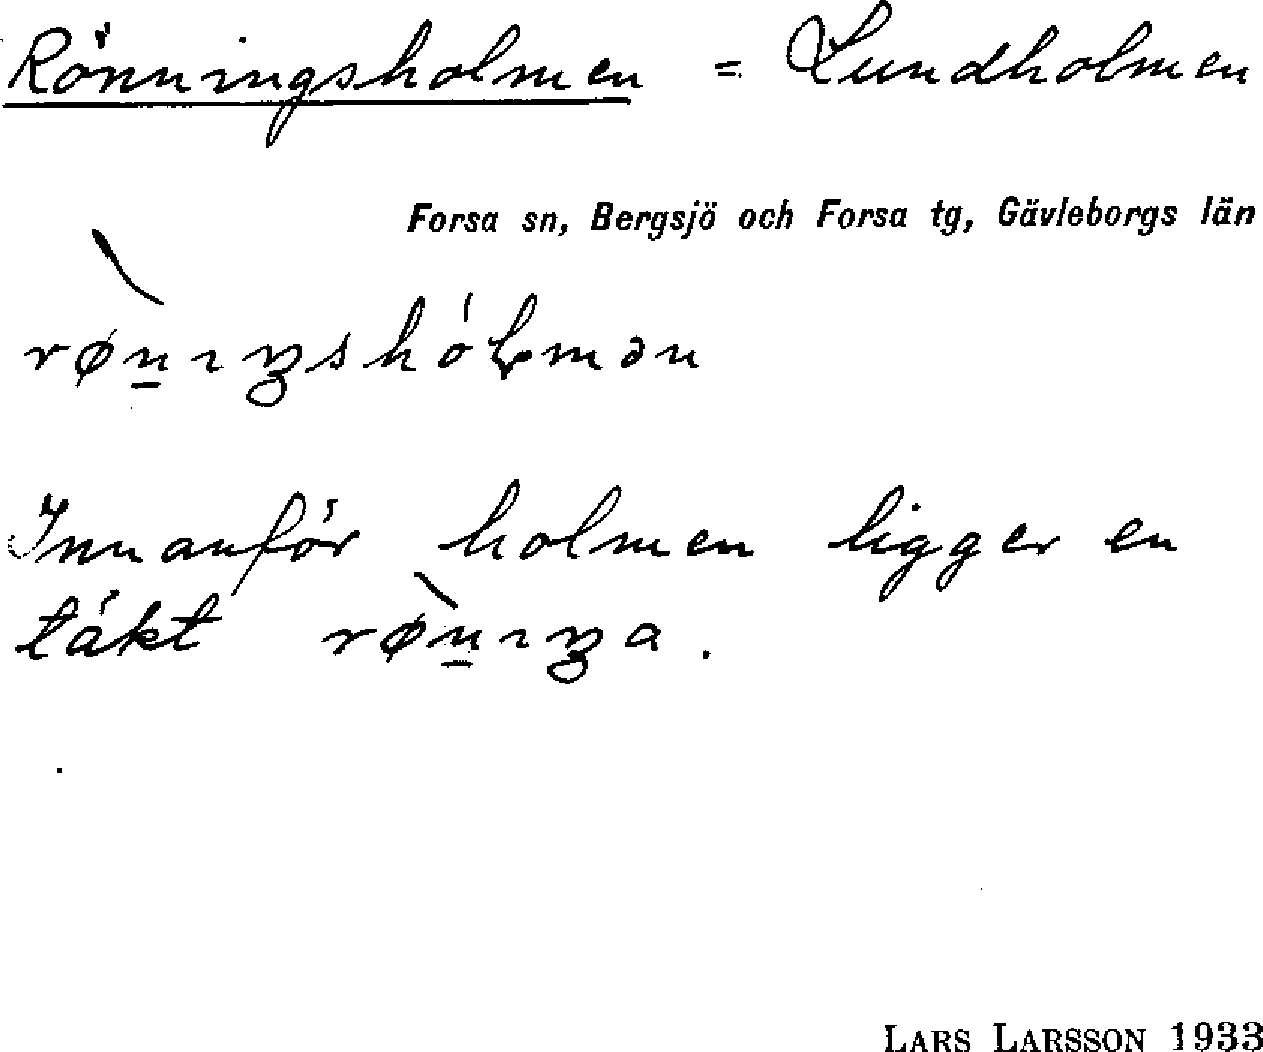 Rönningsholmen = Lundholmen
Forsa sn, Bergsjö och Forsa tg, Gävleborgs län
rø̀n̲ıŋshólmən
Innanför holmen ligger en
täkt rø̀n̲ıŋa.
LARS LARSSON 1933